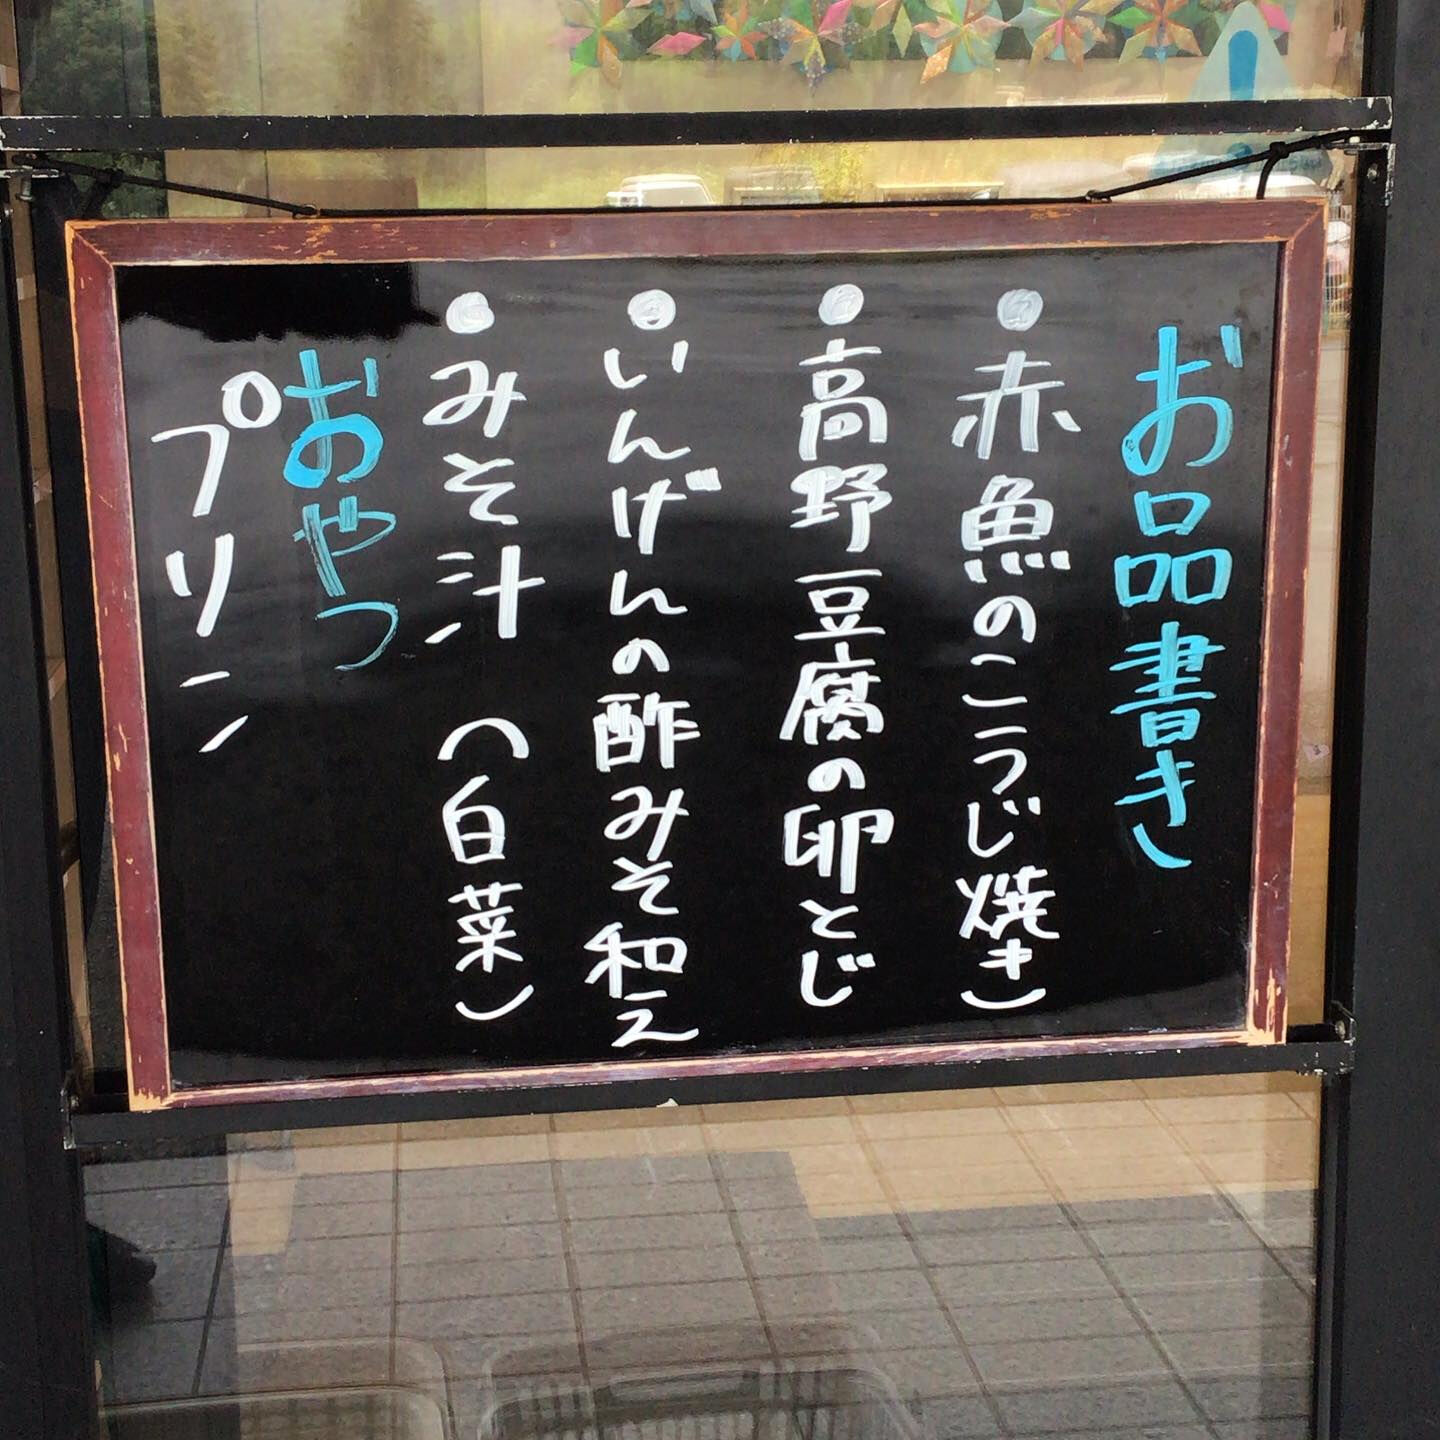 お品書き
●赤魚のこうじ焼き）
●高野豆腐の卵とじ
●いんげんの酢みそ和え
●みそ汁（白菜）
おやつ
プリン